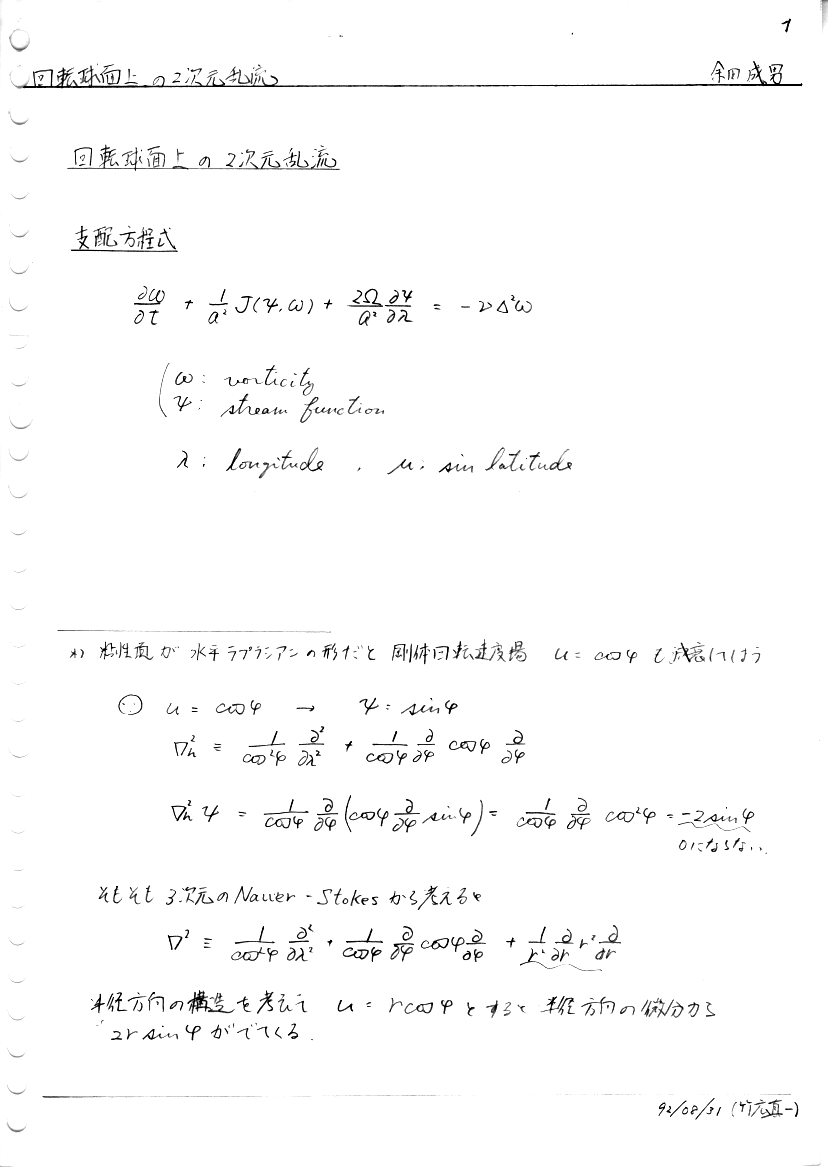 1
回転球面上の2次元乱流 余田成男
回転球面上の2次元乱流
支配方程式
∂ω/∂t + 1/a² J(ψ,ω) + 2Ω/a² ∂ψ/∂λ = -νΔ²ω
ω: vorticity
ψ: stream function
λ: longitude , μ: sin latitude
*) 粘性項が水平ラプラシアンの形だと 剛体回転速度場 u = cosφ も減衰してしまう
∵ u = cosφ → ψ: sinφ
∇h² ≡ 1/cos²φ ∂²/∂λ² + 1/cosφ ∂/∂φ cosφ ∂/∂φ
∇h² ψ = 1/cosφ ∂/∂φ (cosφ ∂/∂φ sinφ) = 1/cosφ ∂/∂φ cos²φ = -2sinφ
0にならない.
そもそも 3次元の Navier-Stokes から考えると
∇² ≡ 1/cos²φ ∂²/∂λ² + 1/cosφ ∂/∂φ cosφ ∂/∂φ + 1/r² ∂/∂r r² ∂/∂r
半径方向の構造を考えて u = r cosφ とすると 半径方向の微分から
2r sinφ がでてくる.
92/08/31 (竹広真一)